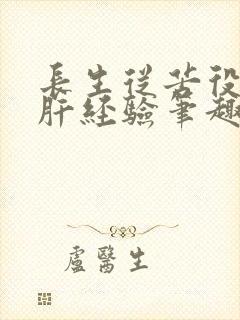 長生從苦役
肝經驗筆趣
盧醫生